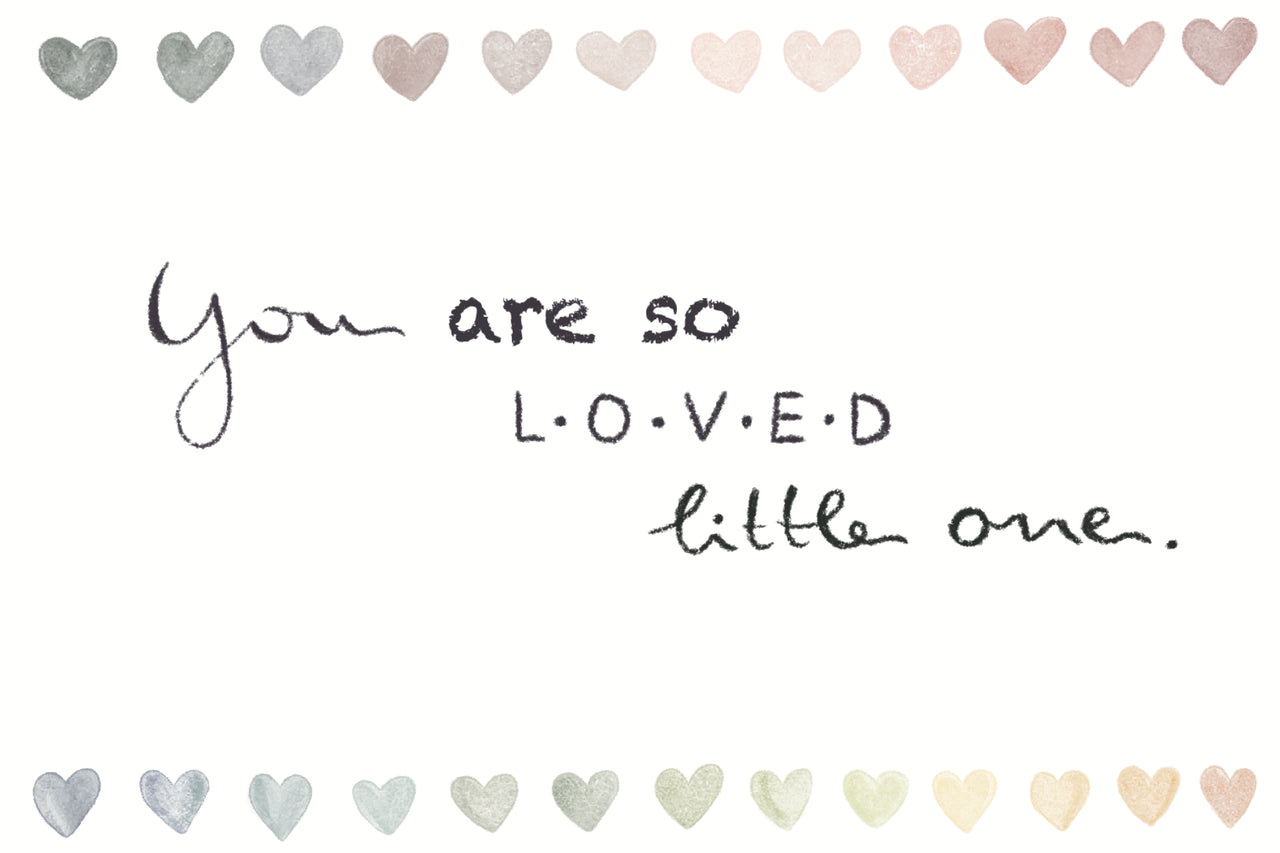 You are so
L·O·V·E·D
little one.